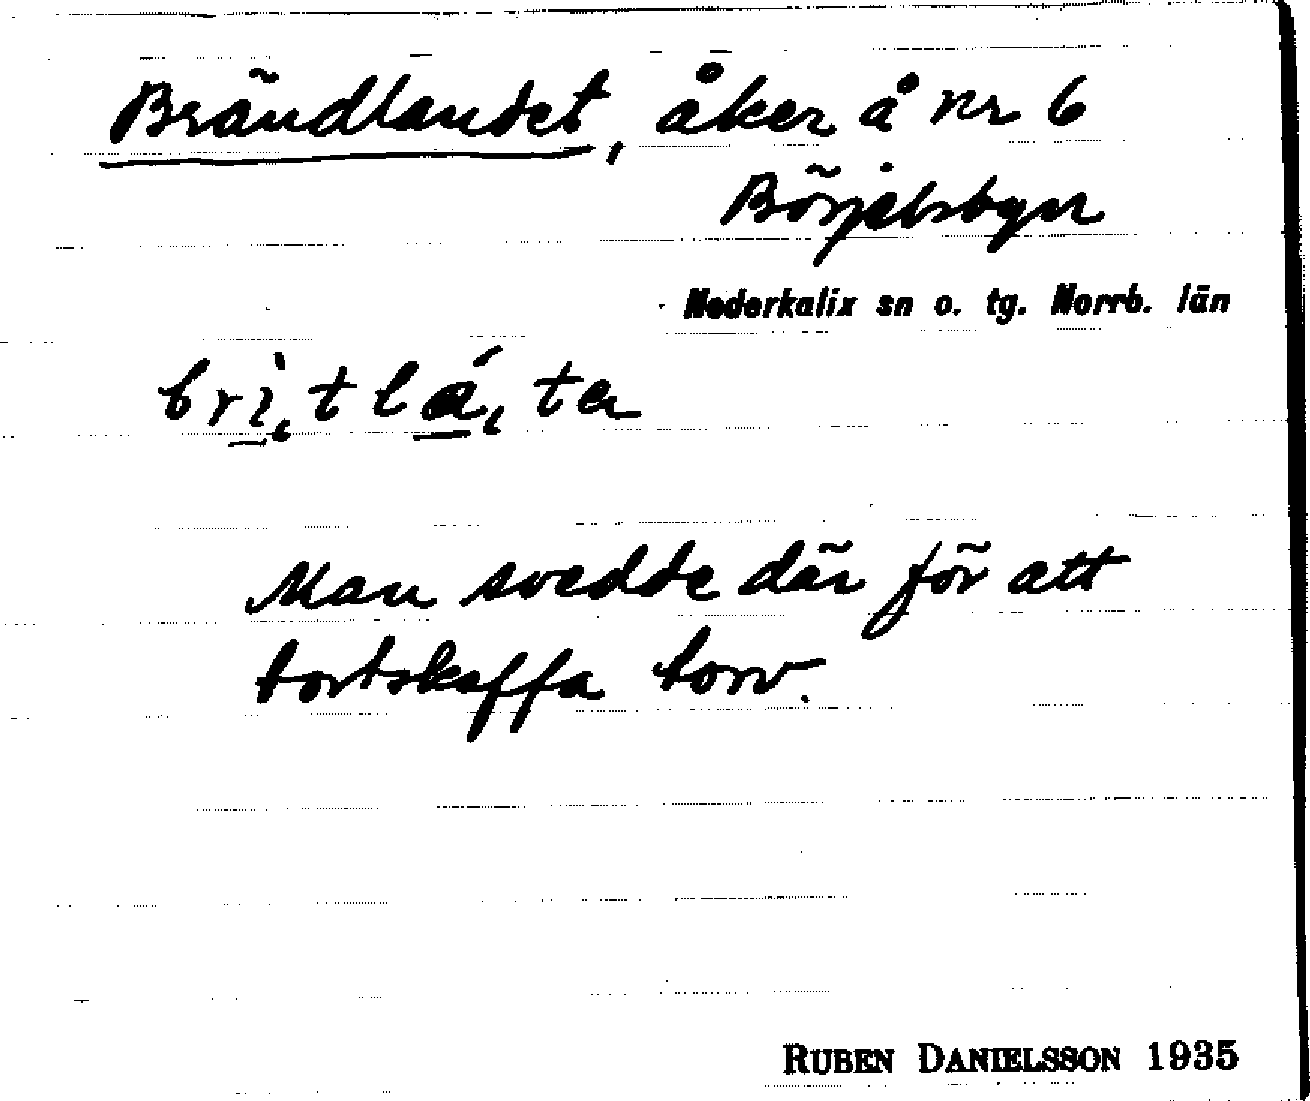 Brändlandet, åker å nr 6
Börjelsbyn
Nederkalix sn o. tg. Norrb. län
Man svedde där för att
bortskaffa torv.
RUBEN DANIELSSON 1935